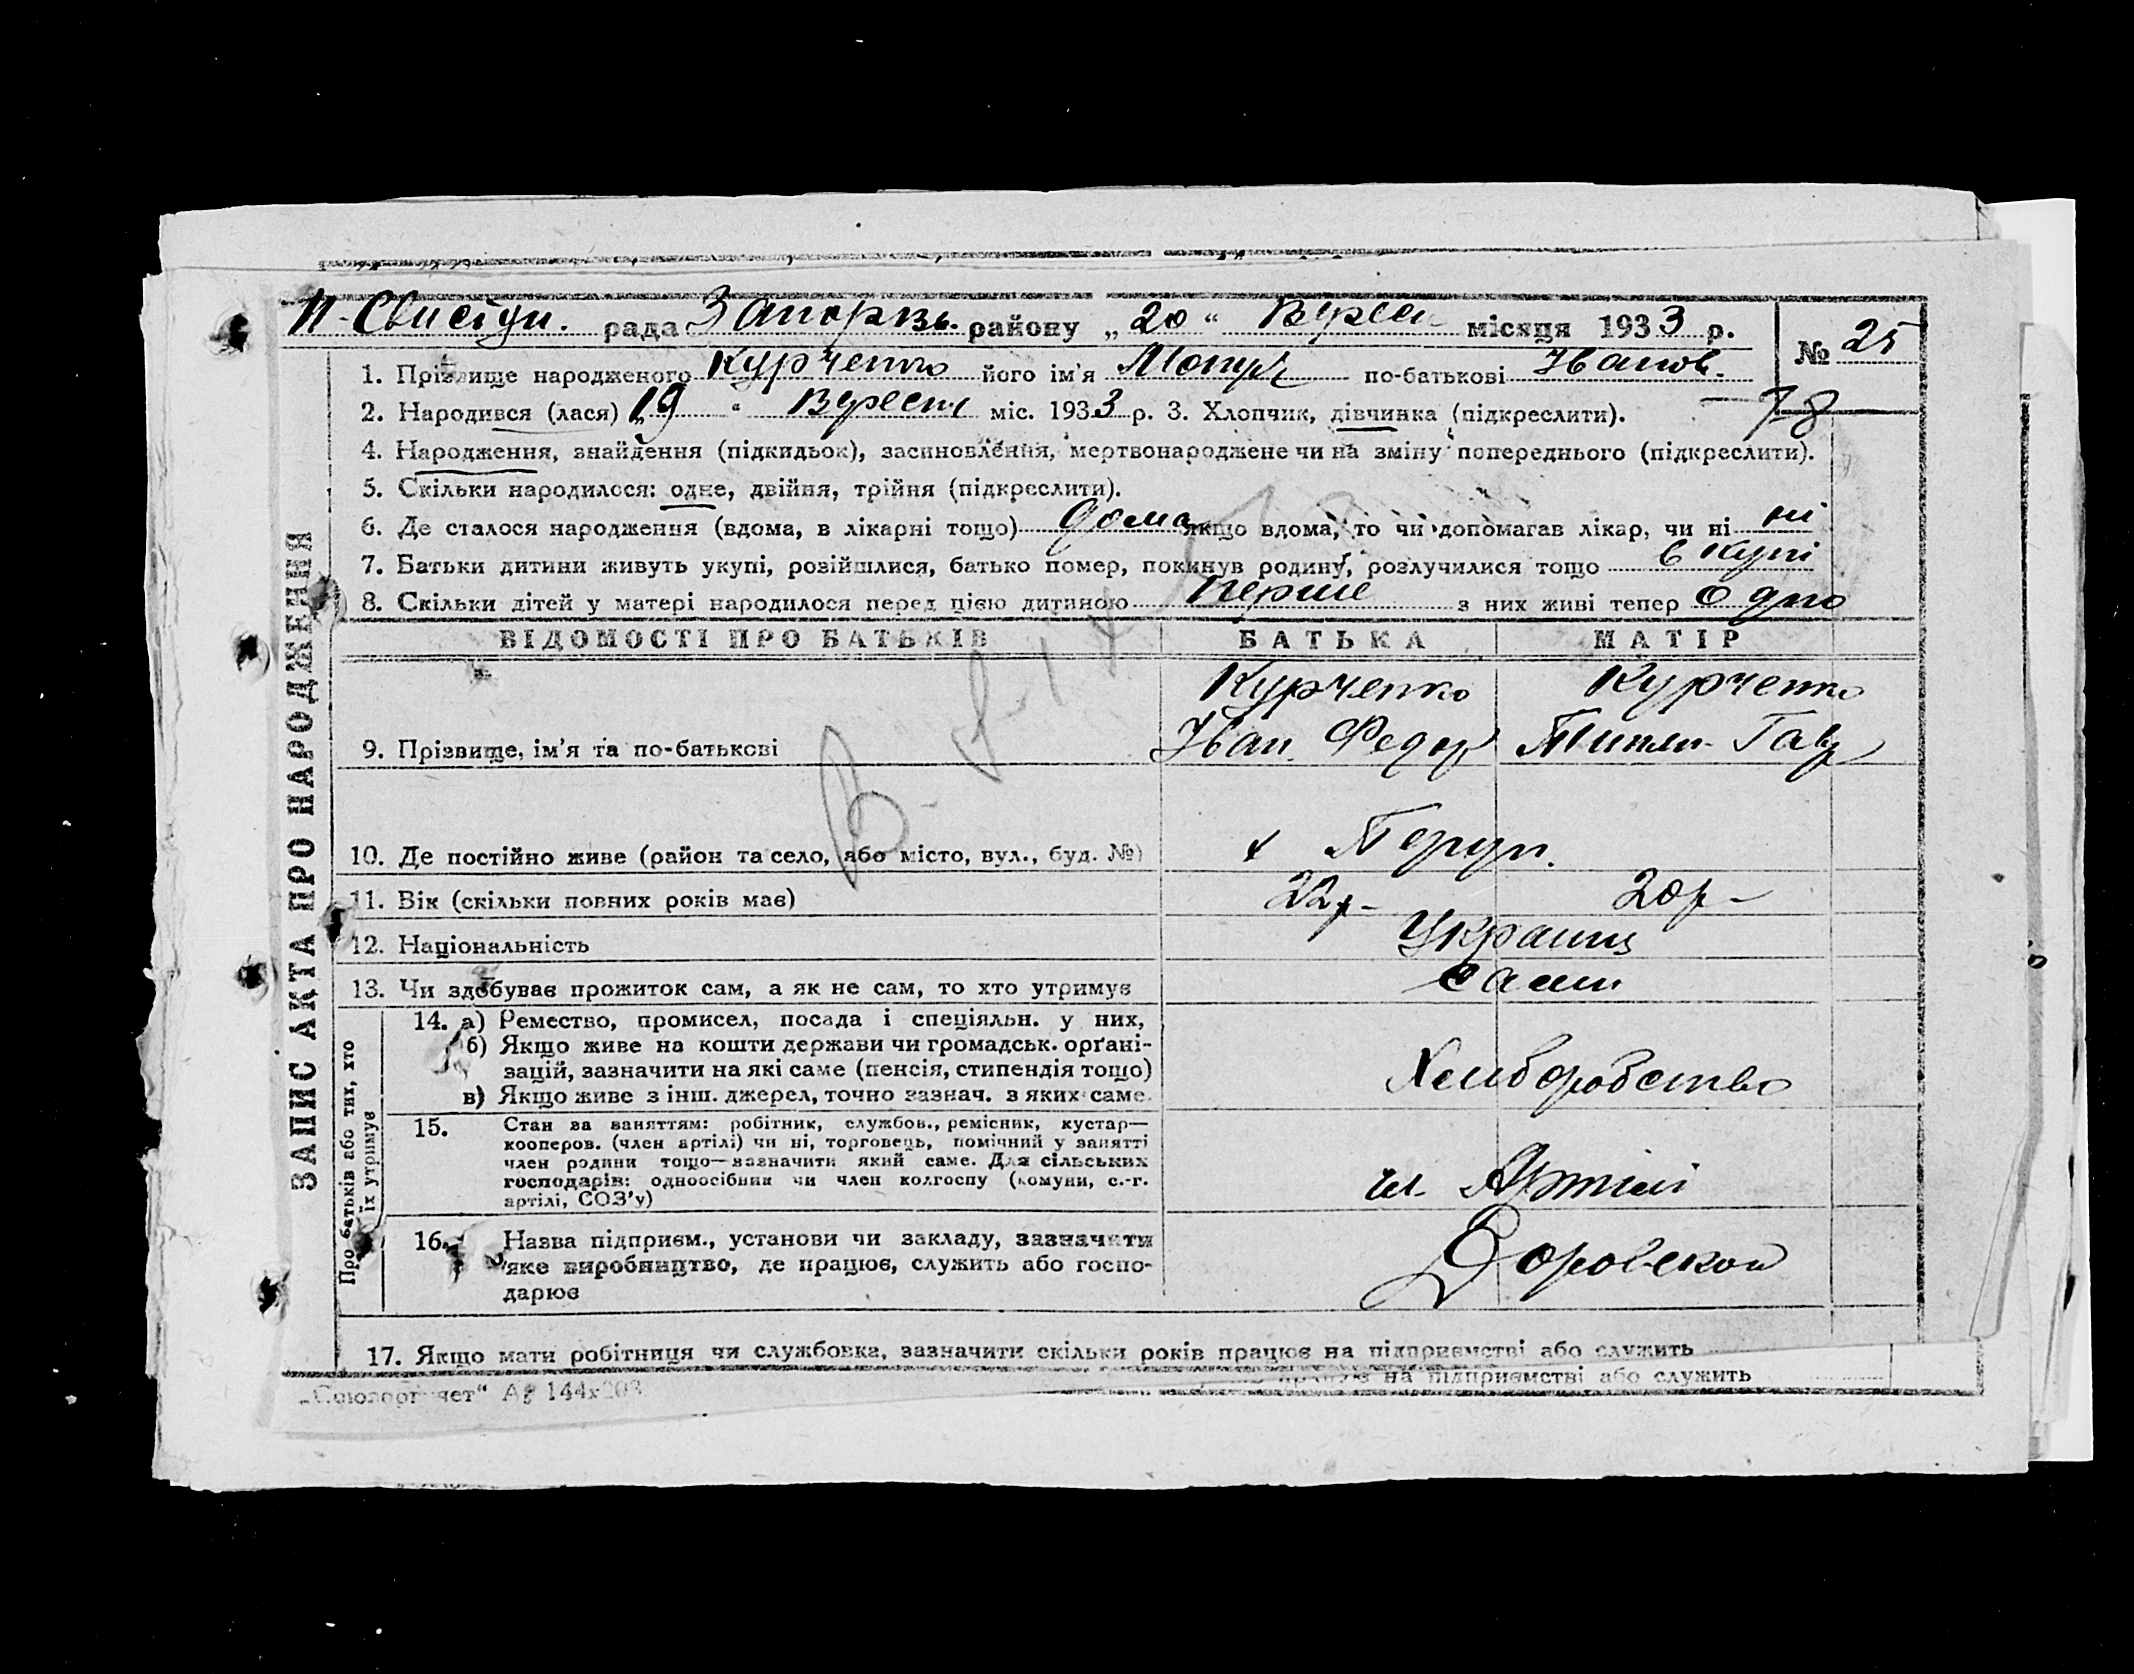 Н-Свистун. рада Запорізь. району „20“ Верес місяця 1933 р.
№ 25
1. Прізвище народженого Курченко його ім'я Мотря по-батькові Іванов.
2. Народився (лася) „19“ Вересня міс. 1933 р. 3. Хлопчик, дівчинка (підкреслити).
78
4. Народження, знайдення (підкидьок), засиновлення, мертвонароджене чи на зміну попереднього (підкреслити).
5. Скільки народилося: одне, двійня, трійня (підкреслити).
6. Де сталося народження (вдома, в лікарні тощо) дома якщо вдома, то чи допомагав лікар, чи ні ні
7. Батьки дитини живуть укупі, розійшлися, батько помер, покинув родину, розлучилися тощо в купі
8. Скільки дітей у матері народилося перед цією дитиною перше з них живі тепер одно
ЗАПИС АКТА ПРО НАРОДЖЕННЯ
ВІДОМОСТІ ПРО БАТЬКІВ БАТЬКА МАТІР
Курченко Курченко
9. Прізвище, ім'я та по-батькові Іван Федор Гавр
10. Де постійно живе (район та село, або місто, вул., буд. №)
11. Вік (скільки повних років має) 22р- 20р-
12. Національність Україні
13. Чи здобуває прожиток сам, а як не сам, то хто утримує сами
Про батьків або тих, хто
їх утримує
14. а) Ремество, промисел, посада і спеціяльн. у них,
б) Якщо живе на кошти держави чи громадськ. орґані-
зацій, зазначити на які саме (пенсія, стипендія тощо)
в) Якщо живе з інш. джерел, точно зазнач. з яких саме.
Хлиборобство
15. Стан за заняттям: робітник, службов., ремісник, кустар—
кооперов. (член артілі) чи ні, торговець, помічний у занятті
член родини тощо—зазначити який саме. Для сільських
господарів: одноосібник чи член колгоспу (комуни, с.-г.
артілі, СОЗ'у)
чл. Артілі
16. Назва підприєм., установи чи закладу, зазначити
яке виробництво, де працює, служить або госпо-
дарює
17. Якщо мати робітниця чи службовка, зазначити скільки років працює на підприємстві або служить
працює на підприємстві або служить